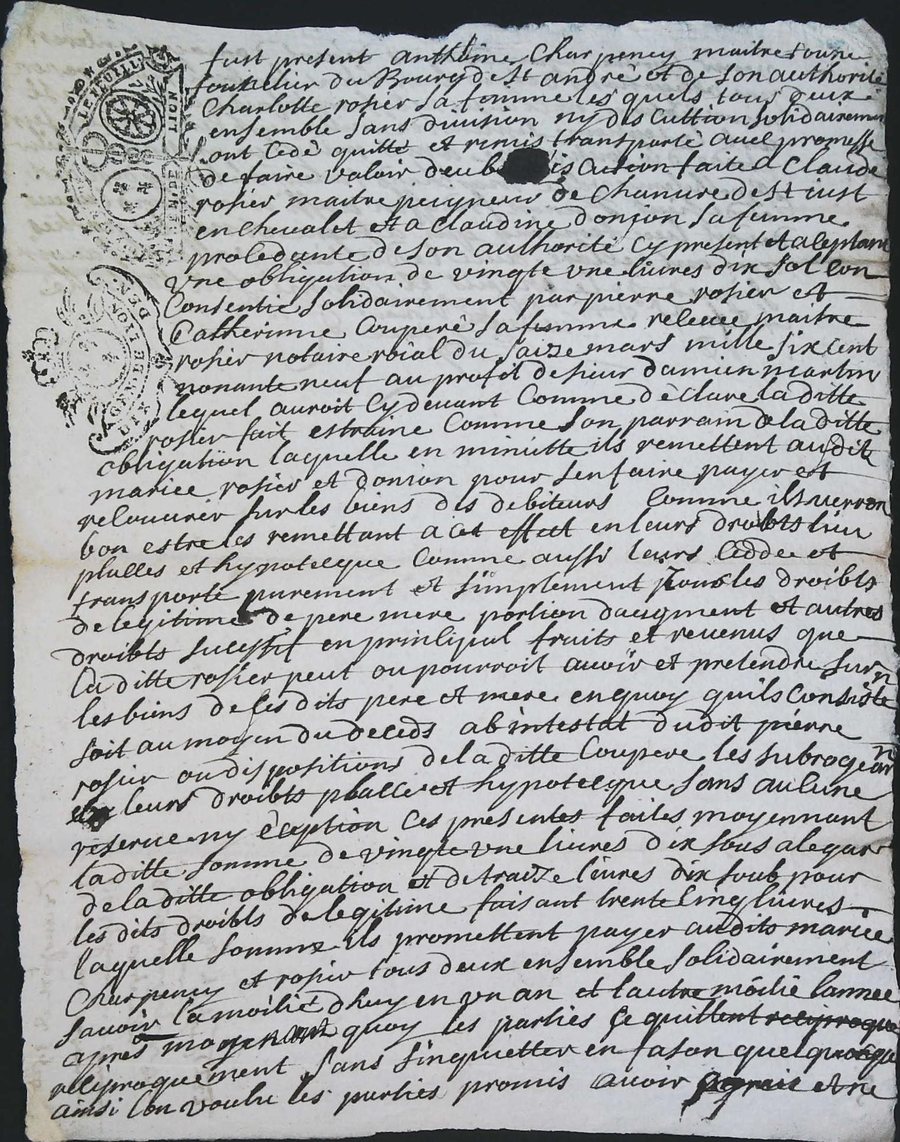 LE FEUILL
GEN DE LION
GEN DE LION
fust present anthoine Charpeney maitre
foutelier du Bourg de st andré et de son authorité
Charlotte rosier sa femme les quels tous deux
ensemble sans division ny discuttion solidairement
ont cedé quitté et remis transporté avel promesse
de faire valoir deub action faite a Claude
rosier maitre peigneur de Chanvre de st iust
en Chevalet et a Claudine donjon sa femme
procedante de son authorité cy present et aceptant
vne obligation de vingte vne livres dix sol
Consentie solidairement par pierre rosier et
Catherinne Couperè sa femme releue maitre
rosier notaire roial du saize mars mille sixcent
nonante neuf au profit de sieur damien martin
lequel auroit Cy devant Comme déclare laditte
rosier fait Comme son parrain de la ditte
obligation laquelle en minutte ils remettent audit
mariee rosier et donjon pour sen faire payer et
recouurer sur les biens des debiteurs Comme ils verron
bon estre les remettant a cet effect en leurs droibts lieu
plasses et hypotecque Comme aussi leurs Cedde et
transporte purement et simplement tous les droibts
de legitime de pere mere portion daugment et autres
droibts sucessif en principal fruits et revenus que
laditte rosier peut ou pourroit avoir et pretendre sur
les biens de ses dits pere et mere en quoy quils Consiste
soit au moyen du deceds abintestat dudit pierre
rosier ou dispositions de la ditte Coupere les subrogeant
leurs droibts plasse et hypotecque sans aucune
reserue ny éception Ces presentes faites moyennant
laditte somme de vingte vne livres dix sous alegard
de la ditte obligation et de traize livres dix soub pour
les dits droibts de legitime faisant trente Cinq livres
laquelle somme ils promettent payer audits mariee
Charpeney et rosier tous deux ensemble solidairement
savoir la moitié dhuy en vn an et lautre moitié lannee
apres moyennant quoy les parties se quittent reciproque
reciproquement sans singuietter en fason quelquonque
ainsi lon voulu les parties promis avoir et ne